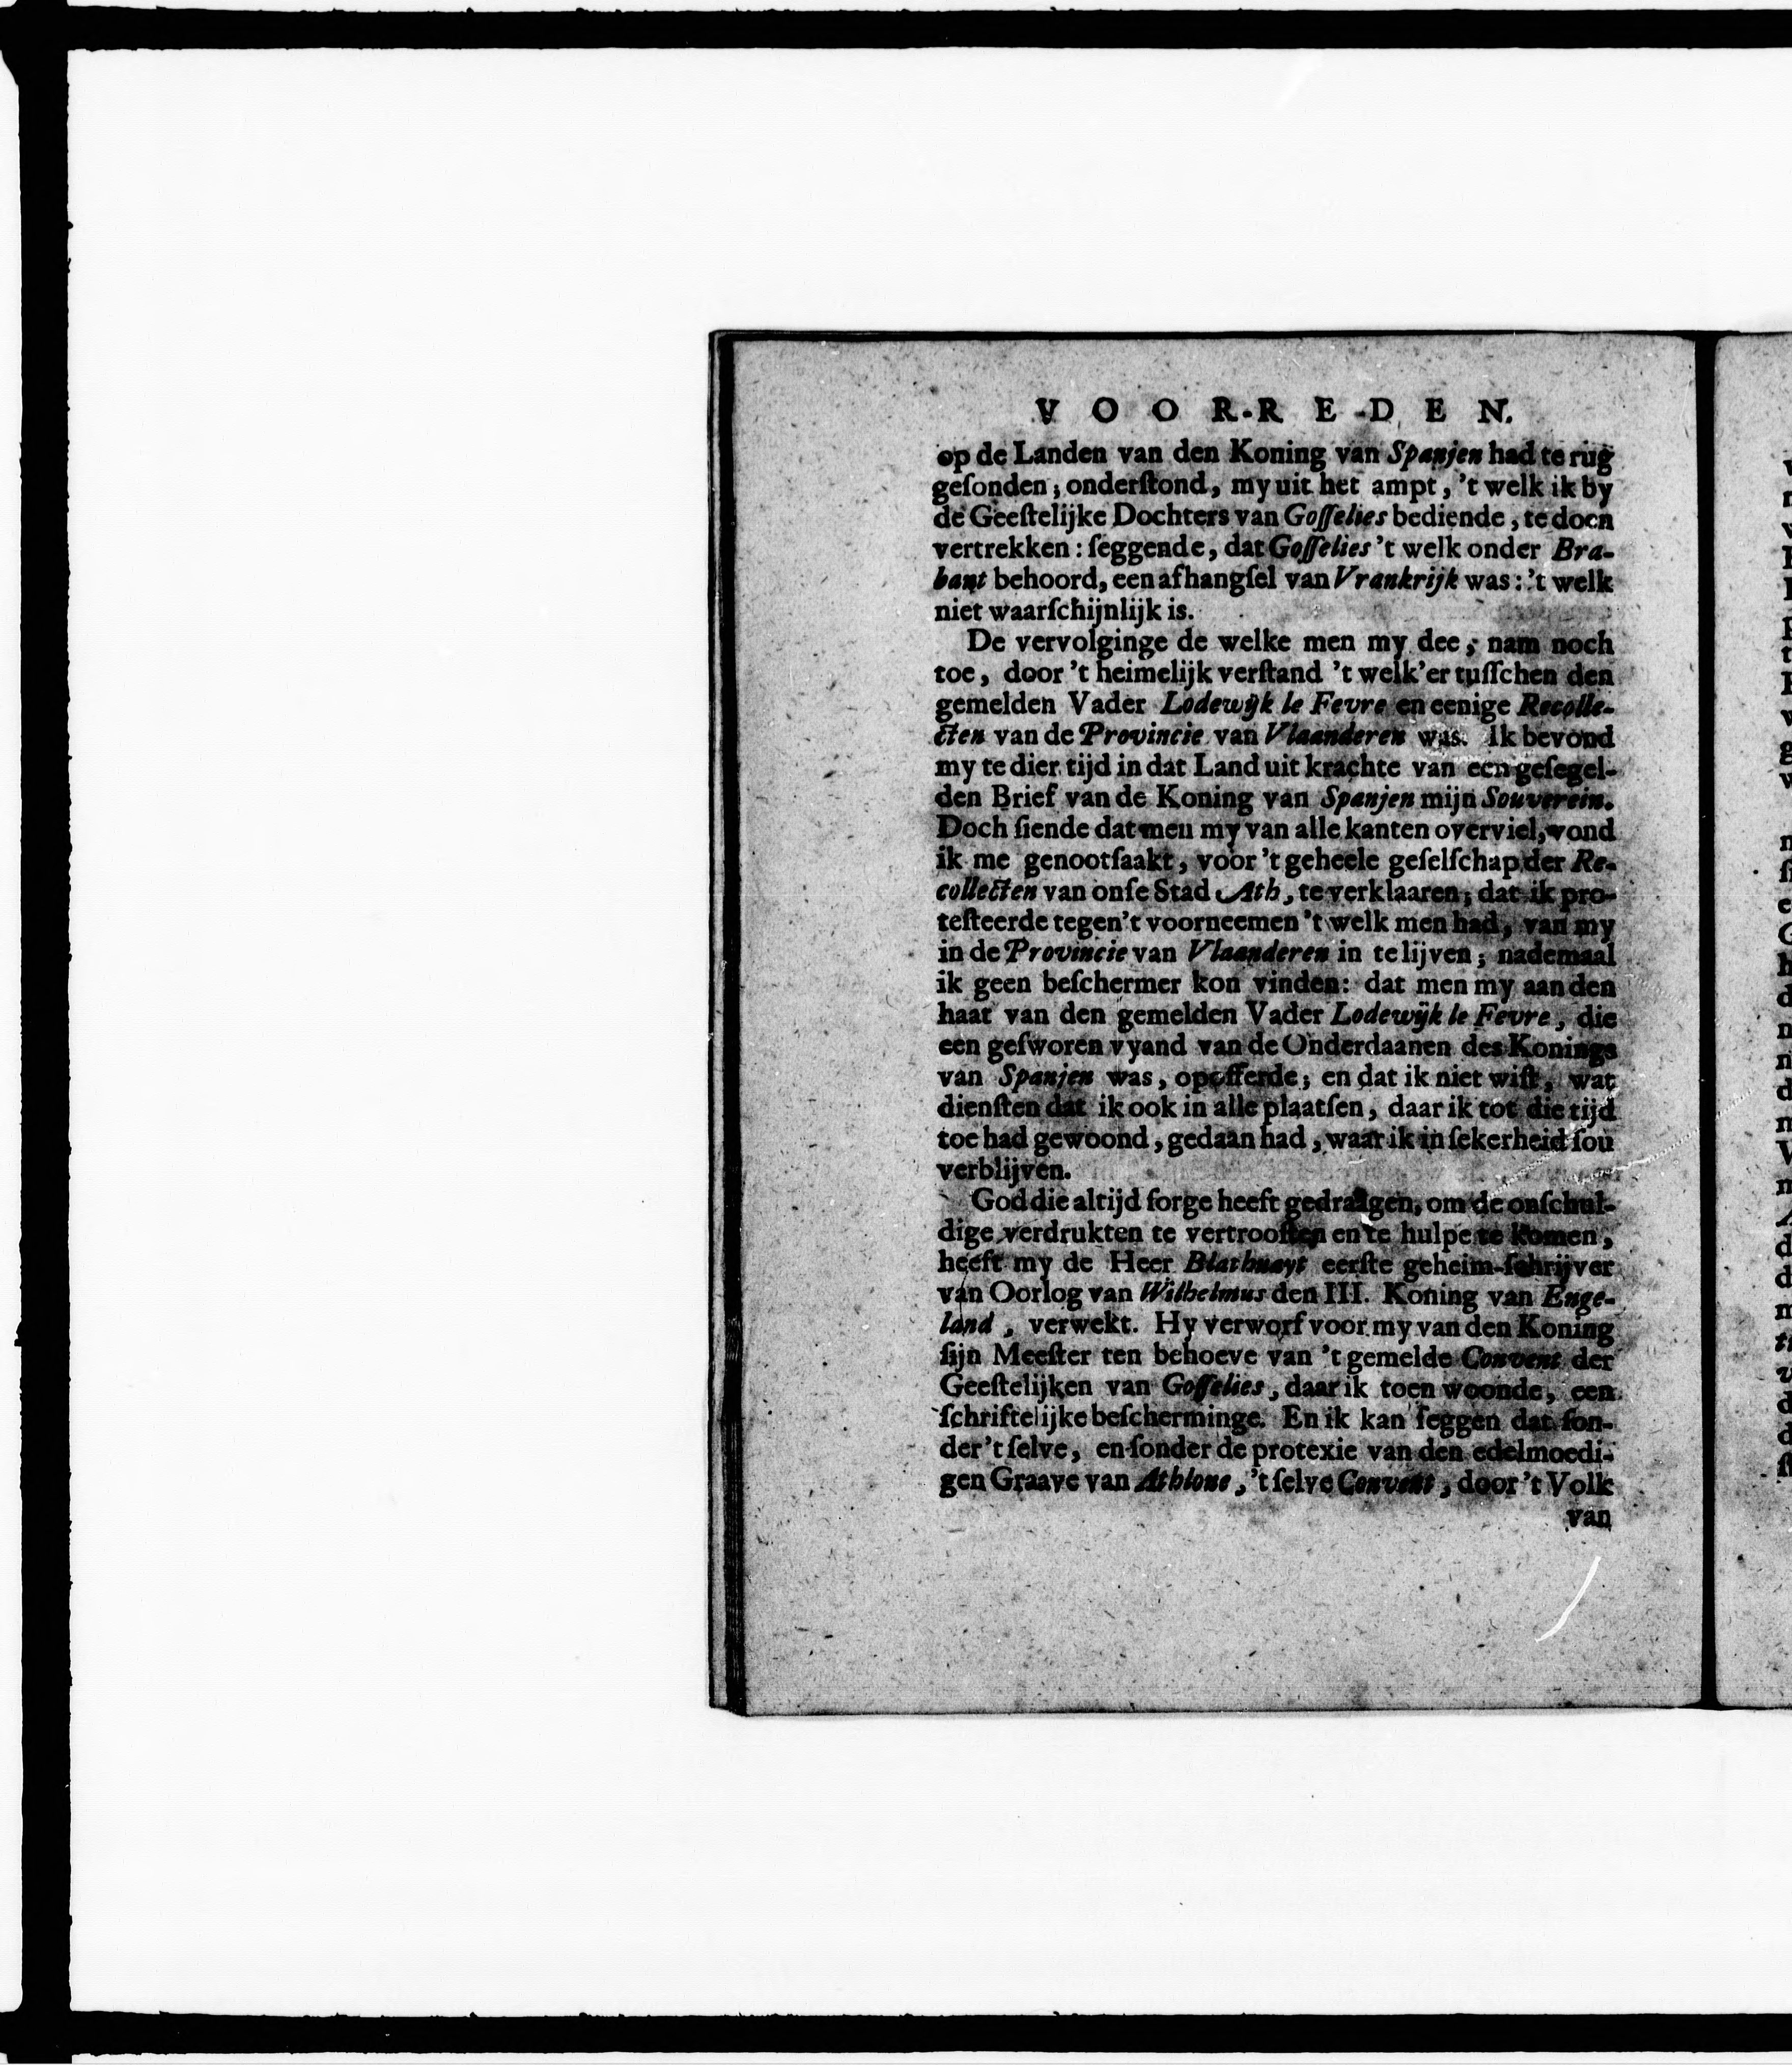 VOOR-REDEN.
op de Landen van den Koning van Spanjen had te rug
geſonden; onderſtond, my uit het ampt, 't welk ik by
de Geeſtelijke Dochters van Goſſelies bediende, te doen
vertrekken: ſeggende, dat Goſſelies 't welk onder Bra-
bant behoord, een afhangſel van Vrankrijk was: 't welk
niet waarſchijnlijk is.
De vervolginge de welke men my dee, nam noch
toe, door 't heimelijk verſtand 't welk'er tuſſchen den
gemelden Vader Lodewijk le Fevre en eenige Recolle-
cten van de Provincie van Vlaanderen was. Ik bevond
my te dier tijd in dat Land uit krachte van een geſegel-
den Brief van de Koning van Spanjen mijn Souverein.
Doch ſiende dat men my van alle kanten overviel, vond
ik me genootſaakt, voor 't geheele geſelſchap der Re-
collecten van onſe Stad Ath, te verklaaren; dat ik pro-
teſteerde tegen 't voorneemen 't welk men had, van my
in de Provincie van Vlaanderen in te lijven; nademaal
ik geen beſchermer kon vinden: dat men my aan den
haat van den gemelden Vader Lodewijk le Fevre, die
een geſworen vyand van de Onderdaanen des Konings
van Spanjen was, opofferde; en dat ik niet wiſt, wat
dienſten dat ik ook in alle plaatſen, daar ik tot die tijd
toe had gewoond, gedaan had, waar ik in ſekerheid ſou
verblijven.
God die altijd ſorge heeft gedraagen, om de onſchul-
dige verdrukten te vertrooſten en te hulpe te komen,
heeft my de Heer Blathuayt eerſte geheim-ſchrijver
van Oorlog van Wilhelmus den III. Koning van Enge-
land, verwekt. Hy verworf voor my van den Koning
ſijn Meeſter ten behoeve van 't gemelde Convent der
Geeſtelijken van Goſſelies, daar ik toen woonde, een
ſchriftelijke beſcherminge. En ik kan ſeggen dat ſon-
der 't ſelve, en ſonder de protexie van den edelmoedi-
gen Graave van Athlone, 't ſelve Convent, door 't Volk
van